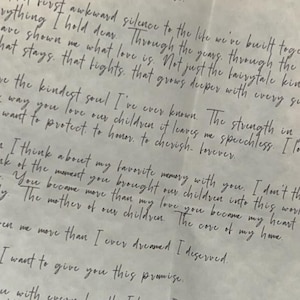 first awkward silence to the life we've built toge
rything I hold dear. Through the years, through the
ave shown me what love is. Not just the fairytale kin
hat stays, that fights, that grows deeper with every s
ve the kindest soul I've ever known. The strength in
way you love our children, it leaves me speechless. I lo
want to protect, to honor, to cherish, forever.
n I think about my favorite memory with you, I don't th
nk of the moment you brought our children into this wor
You became more than my love you became my heart
ly The mother of our children. The core of my home.
ven me more than I ever dreamed I deserved
I want to give you this promise.
ou with every